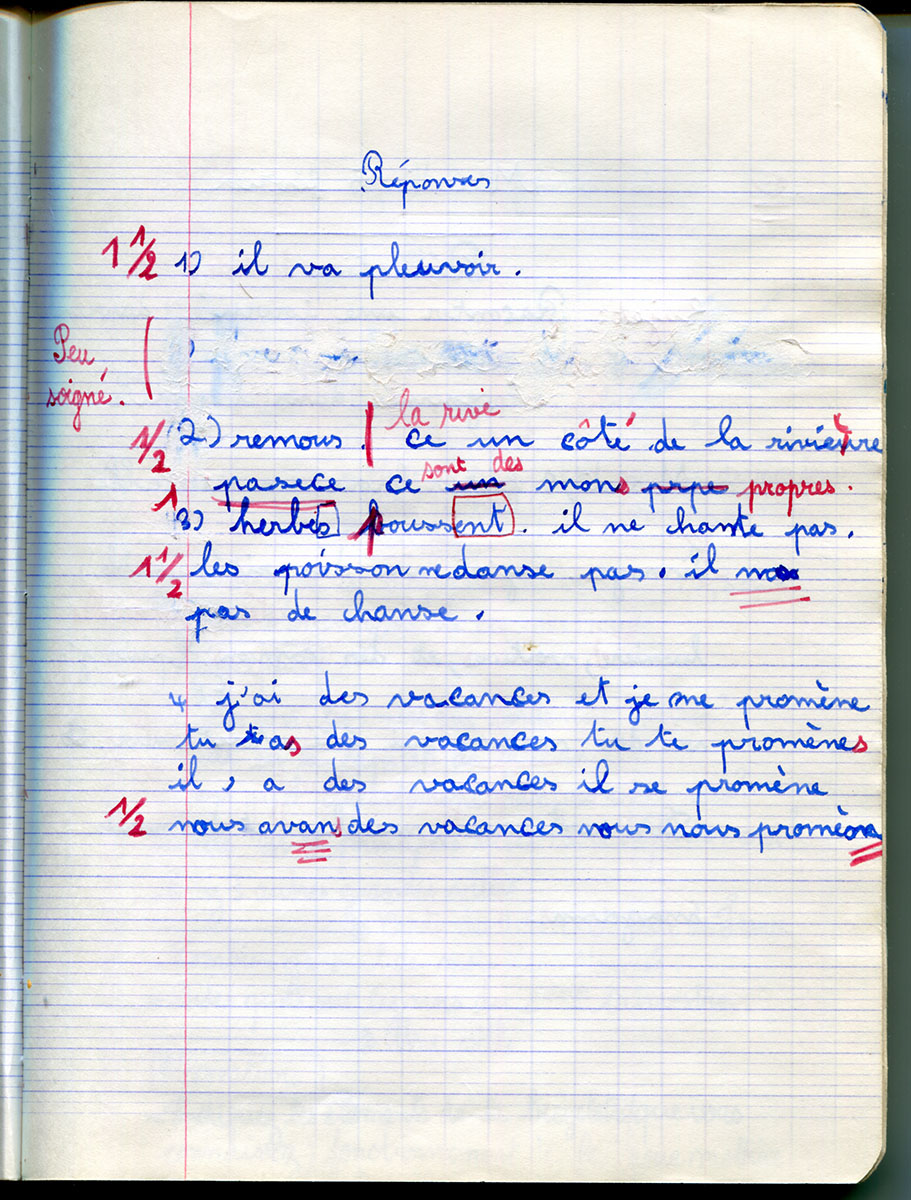 Réponses
1 1/2 1) il va pleuvoir.
Peu
soigné.
la rive
1/2 2) remous. ce un côté de la rivière
sont des
1 pasece ce un mons prpe propres.
3) herbes poussent. il ne chante pas.
1 1/2 les poisson ne danse pas. il
pas de chanse.
4 j'ai des vacances et je me promène
tu as des vacances tu te promènes
il, a des vacances il se promène
1/2 nous avans des vacances nous nous promèons